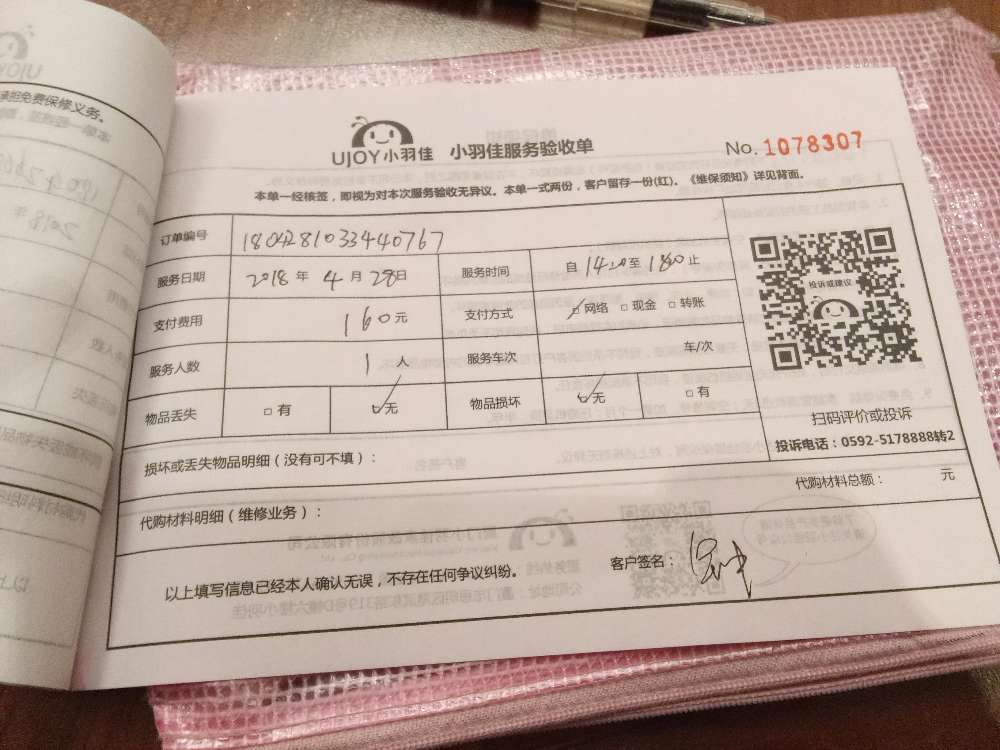 承担免费保修义务。
UJOY小羽佳 小羽佳服务验收单 No. 1078307
本单一经核签，即视为对本次服务验收无异议。本单一式两份，客户留存一份(红)。《维保须知》详见背面。
订单编号 1804281033440767
服务日期 2018 年 4 月 28日 服务时间 自 至 止
支付费用 160元 支付方式 网络 现金 转账
服务人数 1 人 服务车次 车/次
物品丢失 有 无 物品损坏 无 有
投诉或建议
扫码评价或投诉
投诉电话：0592-5178888转2
损坏或丢失物品明细（没有可不填）：
代购材料明细（维修业务）： 代购材料总额： 元
以上填写信息已经本人确认无误，不存在任何争议纠纷。 客户签名：